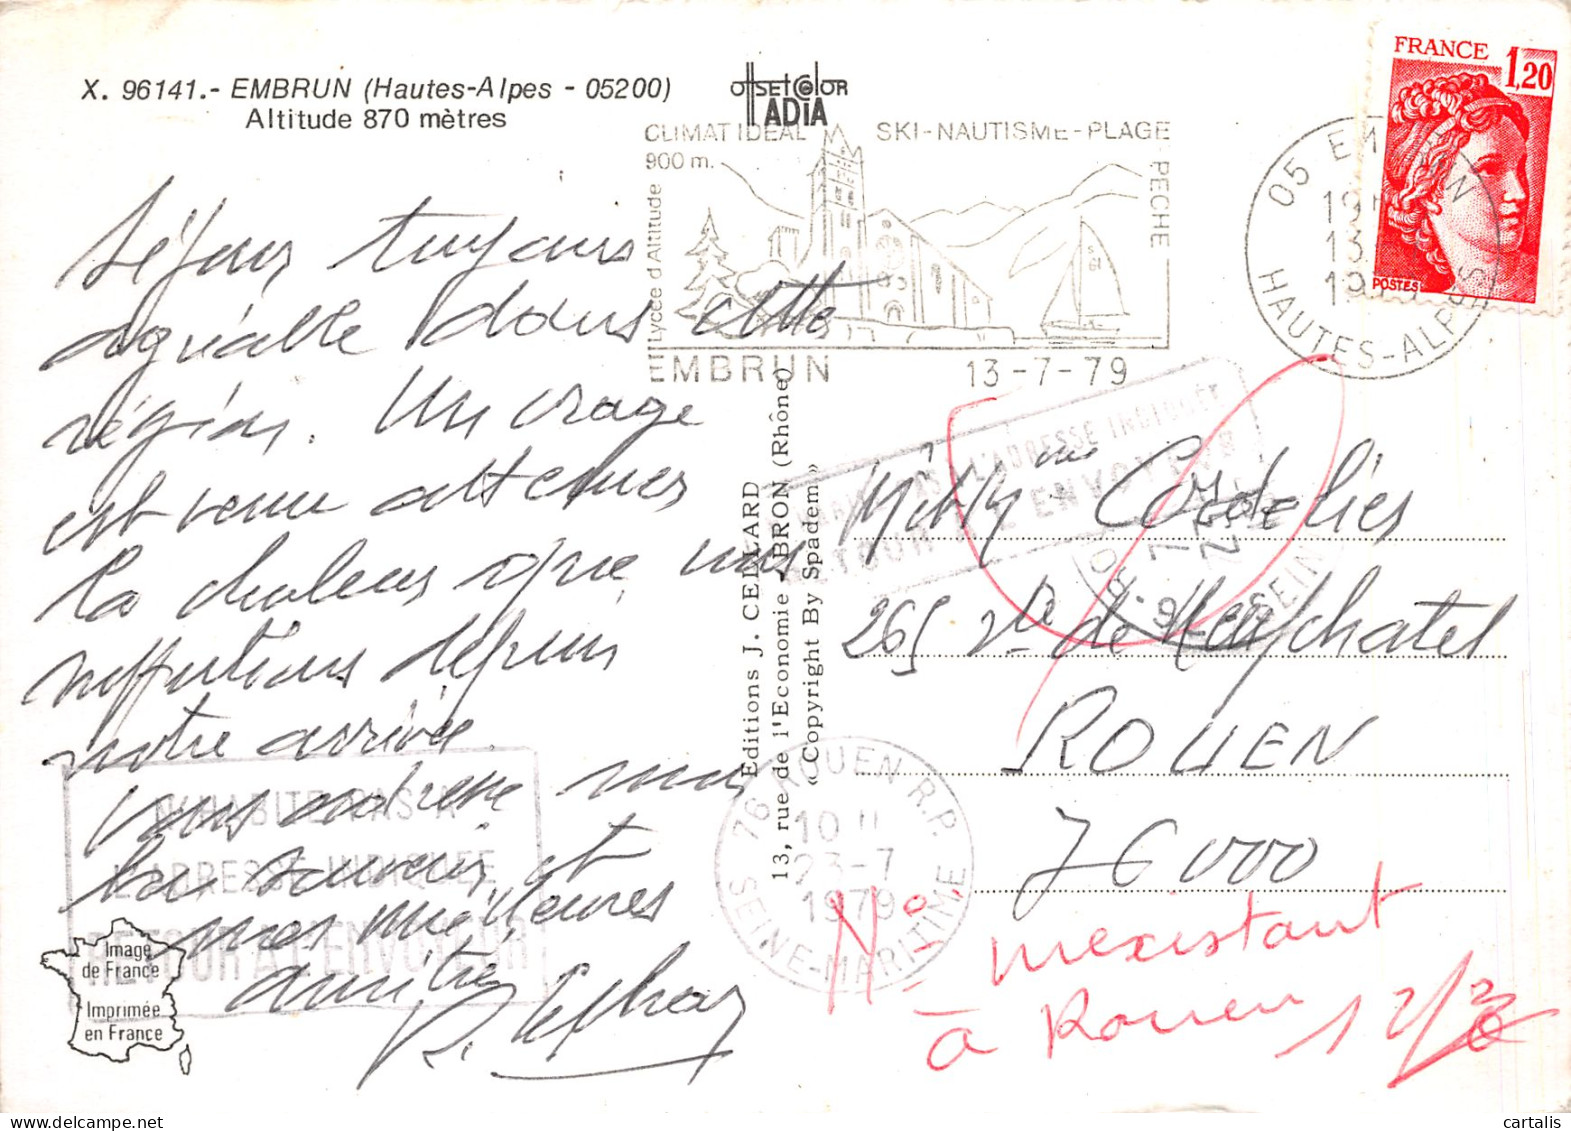 X. 96141.- EMBRUN (Hautes-Alpes - 05200)
Altitude 870 mètres
OFFSET COLOR
ADIA
CLIMAT IDEAL
900 m.
SKI-NAUTISME-PLAGE
PECHE
Lycée d'Altitude
EMBRUN
13-7-79
FRANCE 1,20
POSTES
05 EMBRUN
13
HAUTES-ALPES
Séjour toujours
agréable dans cette
région. Un orage
est venu atténuer
la chaleur que nous
depuis
notre arrivée.
vous adresse mon
bon souvenir et
mes meilleures
amitiés
Editions J. CELLARD
13, rue de l'Economie BRON (Rhône)
« Copyright By Spadem »
Cordelier
265 de Neufchatel
ROUEN
76000
N'HABITE PAS A
L'ADRESSE INDIQUÉE
RETOUR A L'ENVOYEUR
N'HABITE PAS A L'ADRESSE INDIQUÉE
RETOUR A L'ENVOYEUR
76 ROUEN R.P.
10 H
23-7
1979
SEINE-MARITIME
N° inexistant
à Rouen
Image
de France
Imprimée
en France
cartalis